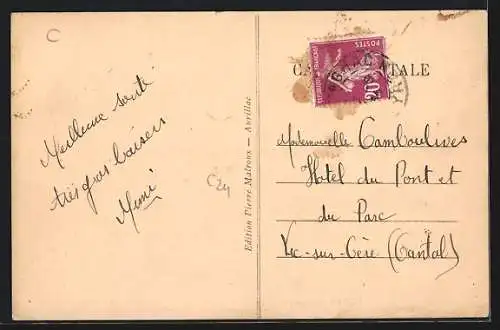 C
CARTE POSTALE
REPUBLIQUE FRANÇAISE
POSTES
20c
Meilleure santé
très gros baisers
Mimi
C24
Edition Pierre Malroux — Aurillac
Mademoiselle Camboulives
Hotel du Pont et
du Parc
Vic-sur-Cère (Cantal)